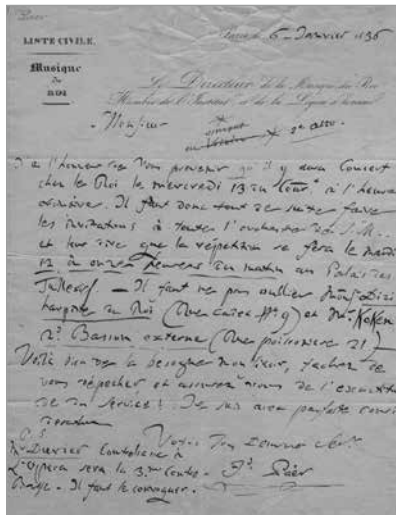 Paer
LISTE CIVILE.
Paris le 6 Janvier 1836
Musique
du
ROI
Le Directeur de la Musique du Roi
Membre de l'Institut et de la Légion d'honneur
Monsieur
J'ai l'honneur de vous prévenir qu'il y aura Concert
chez le Roi le mercredi 13 du Cour^t à l'heure
ordinaire. Il faut donc tout de suite faire
les invitations à toute l'orchestre de S.M.
et leur dire que la répétition se fera le mardi
12 à onze heures du matin au Palais des
Tuileries. — Il faut ne pas oublier Mons^r Dizi
harpiste du Roi (rue Cadet n° 9) et M^r Koken
2^d Basson externe (rue poissonière 21)
Voilà de la besogne Monsieur, tachez de
vous dépêcher et assurez nous de l'exactitude
de du service! Je suis avec parfaite consi
deration
Votre
P.S
M^r Durier Contrebasse à
L'Opera sera la 3^me Contre
Basse. Il faut le convoquer.
F^d Päer